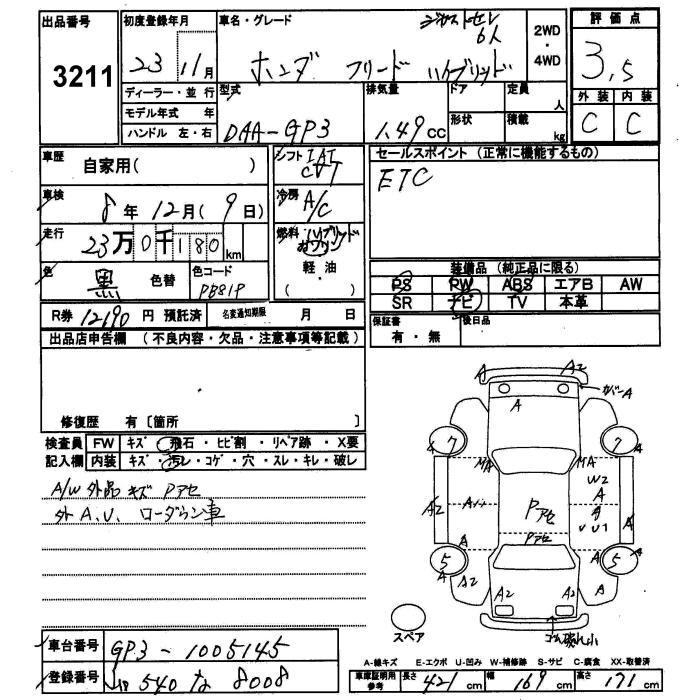 出品番号 3211
初度登録年月 23 11月
車名・グレード ジャストセレ 6人
ホンダ フリード ハイブリッド
2WD・4WD
評価点 3.5
外装 内装
C C
ディーラー・並 行
モデル年式 年
ハンドル 左・右
型式 DAA-GP3
排気量 1.49cc
ドア
定員 人
形状
積載 kg
車歴 自家用( )
シフト IAT CVT
車検 8年12月(9日)
冷房 A/C
走行 23万0千180km
燃料・ハイブリッド
ガソリン
軽・油
( )
色 黒 色替 色コード PB81P
セールスポイント (正常に機能するもの)
ETC
装備品 (純正品に限る)
PS PW ABS エアB AW
SR ナビ TV 本革
R券 12190円 預託済 名変通知期限 月 日
保証書 有・無 後日品
出品店申告欄 (不良内容・欠品・注意事項等記載)
修復歴 有〔箇所 〕
検査員 FW キズ・飛石・ヒビ割・リペア跡・X要
記入欄 内装 キズ・汚レ・コゲ・穴・スレ・キレ・破レ
A/W外品キズ Pアセ
外A.U. ローダウン車
A A2 カバーA
A
A 7 7 A
MA MA
W2
A2 Aハ Pアセ A A
UU1
Pアセ
A
5 5 A
A A2 A2 A2 A
スペア
ゴム破れ小
車台番号 GP3-1005145
登録番号 540 な 8008
A-線キズ E-エクボ U-凹み W-補修跡 S-サビ C-腐食 XX-取替済
車庫証明用参考 長さ 421cm 幅 169cm 高さ 171cm